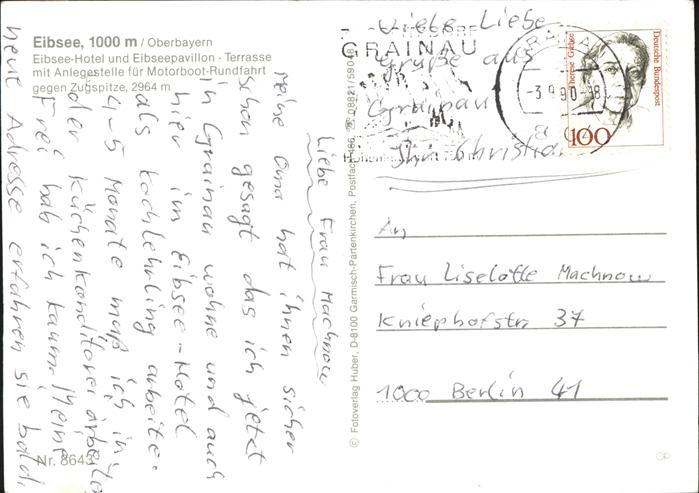 Eibsee, 1000 m / Oberbayern
Eibsee-Hotel und Eibseepavillon · Terrasse
mit Anlegestelle für Motorboot-Rundfahrt
gegen Zugspitze, 2964 m
Liebe Frau Machnow
Meine Oma hat ihnen sicher
schon gesagt das ich jetzt
in Grainau wohne und auch
hier im Eibsee-Hotel
als Kochlehrling arbeite.
4-5 Monate muß ich in
der Küchenkonditorei arbeiten
Frei hab ich kaum. Meine
neue Adresse erfahren sie bald.
Viele Liebe
Grüße aus
Grainau
Ihr Christian
GRAINAU
-3.9.90-18
Therese Giehse
Deutsche Bundespost
100
An
Frau Liselotte Machnow
Kniephofstr 37
1000 Berlin 41
Nr. 8643
© Fotoverlag Huber, D-8100 Garmisch-Partenkirchen, Postfach 486, ☎ 08821/59048